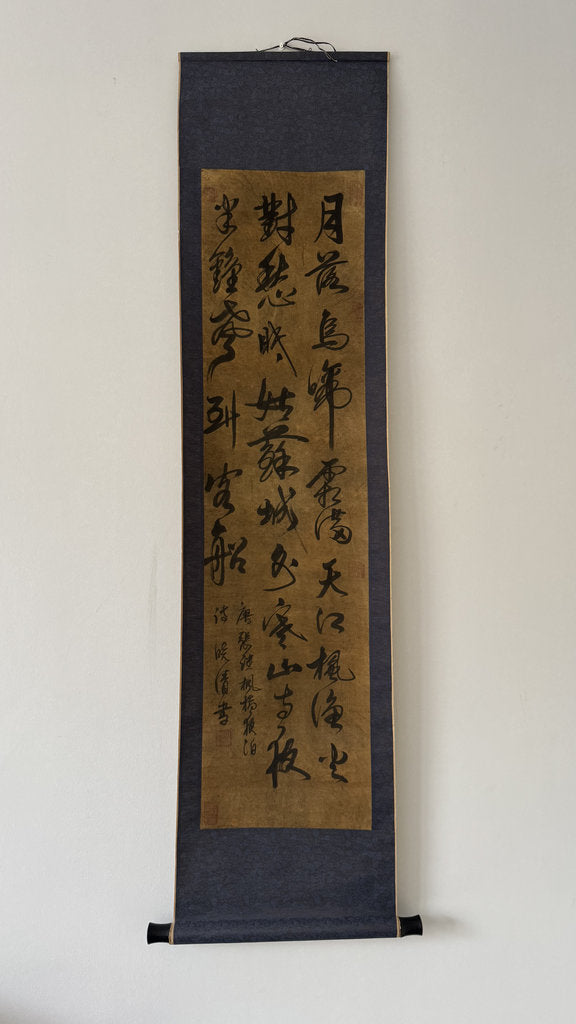 月落烏啼霜滿天江楓漁火
對愁眠姑蘇城外寒山寺夜
半鐘聲到客船
唐張繼楓橋夜泊
詩 曉清書